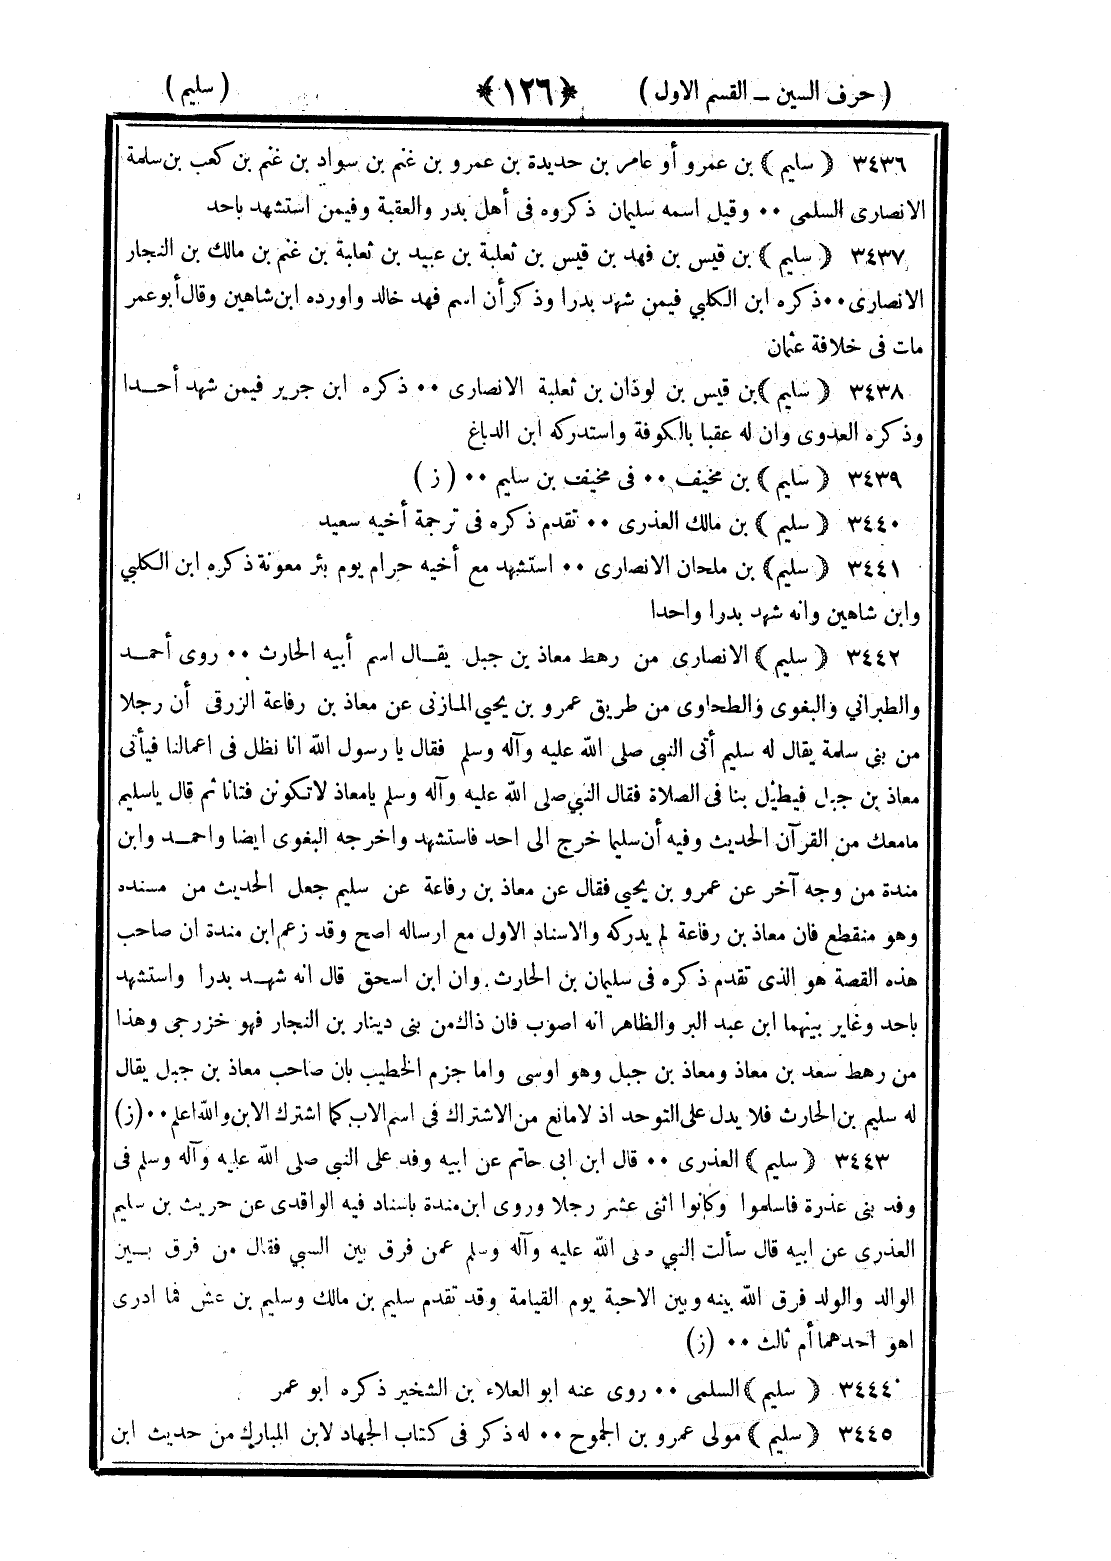 ( حرف السين ــ القسم الاول ) ﴿ ١٢٦ ﴾ ( سليم )
٣٤٣٦ ( سليم ) بن عمرو أو عامر بن حديدة بن عمرو بن غنم بن سواد بن غنم بن كعب بن سلمة
الانصارى السلمى ٠٠ وقيل اسمه سليمان ذكروه فى أهل بدر والعقبة وفيمن استشهد باحد
٣٤٣٧ ( سليم ) بن قيس بن فهد بن قيس بن ثعلبة بن عبيد بن ثعلبة بن غنم بن مالك بن النجار
الانصارى ٠٠ ذكره ابن الكلبي فيمن شهد بدرا وذكر أن اسم فهد خالد واورده ابن شاهين وقال أبو عمر
مات فى خلافة عثمان
٣٤٣٨ ( سليم ) بن قيس بن لوذان بن ثعلبة الانصارى ٠٠ ذكره ابن جرير فيمن شهد أحـدا
وذكره العدوى وان له عقبا بالكوفة واستدركه ابن الدباغ
٣٤٣٩ ( سليم ) بن مخيف ٠٠ فى مخيف بن سليم ٠٠ ( ز )
٣٤٤٠ ( سليم ) بن مالك العذرى ٠٠ تقدم ذكره فى ترجمة أخيه سعيد
٣٤٤١ ( سليم ) بن ملحان الانصارى ٠٠ استشهد مع أخيه حرام يوم بئر معونة ذكره ابن الكلبي
وابن شاهين وانه شهد بدرا واحدا
٣٤٤٢ ( سليم ) الانصارى من رهط معاذ بن جبل يقـال اسم أبيه الحارث ٠٠ روى أحمـد
والطبراني والبغوى والطحاوى من طريق عمرو بن يحيى المازنى عن معاذ بن رفاعة الزرقى أن رجلا
من بنى سلمة يقال له سليم أتى النبي صلى الله عليه وآله وسلم فقال يا رسول الله انا نظل فى اعمالنا فيأتى
معاذ بن جبل فيطيل بنا فى الصلاة فقال النبي صلى الله عليه وآله وسلم يامعاذ لاتكونن فتانا ثم قال ياسليم
مامعك من القرآن الحديث وفيه أن سليما خرج الى احد فاستشهد واخرجه البغوى ايضا واحمـد وابن
مندة من وجه آخر عن عمرو بن يحيى فقال عن معاذ بن رفاعة عن سليم جعل الحديث من مسنده
وهو منقطع فان معاذ بن رفاعة لم يدركه والاسناد الاول مع ارساله اصح وقد زعم ابن مندة ان صاحب
هذه القصة هو الذى تقدم ذكره فى سليمان بن الحارث وان ابن اسحق قال انه شهـد بدرا واستشهد
باحد وغاير بينهما ابن عبد البر والظاهر انه اصوب فان ذاك من بنى دينار بن النجار فهو خزرجى وهذا
من رهط سعد بن معاذ ومعاذ بن جبل وهو اوسى واما جزم الخطيب بان صاحب معاذ بن جبل يقال
له سليم بن الحارث فلا يدل على التوحد اذ لامانع من الاشتراك فى اسم الاب كما اشترك الابن والله اعلم ٠٠ (ز)
٣٤٤٣ ( سليم ) العذرى ٠٠ قال ابن ابى حاتم عن ابيه وفد على النبي صلى الله عليه وآله وسلم فى
وفد بنى عذرة فاسلموا وكانوا اثنى عشر رجلا وروى ابن مندة باسناد فيه الواقدى عن حريث بن سليم
العذرى عن ابيه قال سألت النبي صلى الله عليه وآله وسلم عمن فرق بين السبي فقال من فرق بـين
الوالد والولد فرق الله بينه وبين الاحبة يوم القيامة وقد تقدم سليم بن مالك وسليم بن عش فما ادرى
اهو احدهما أم ثالث ٠٠ (ز)
٣٤٤٤ ( سليم ) السلمى ٠٠ روى عنه ابو العلاء بن الشخير ذكره ابو عمر
٣٤٤٥ ( سليم ) مولى عمرو بن الجموح ٠٠ له ذكر فى كتاب الجهاد لابن المبارك من حديث ابن